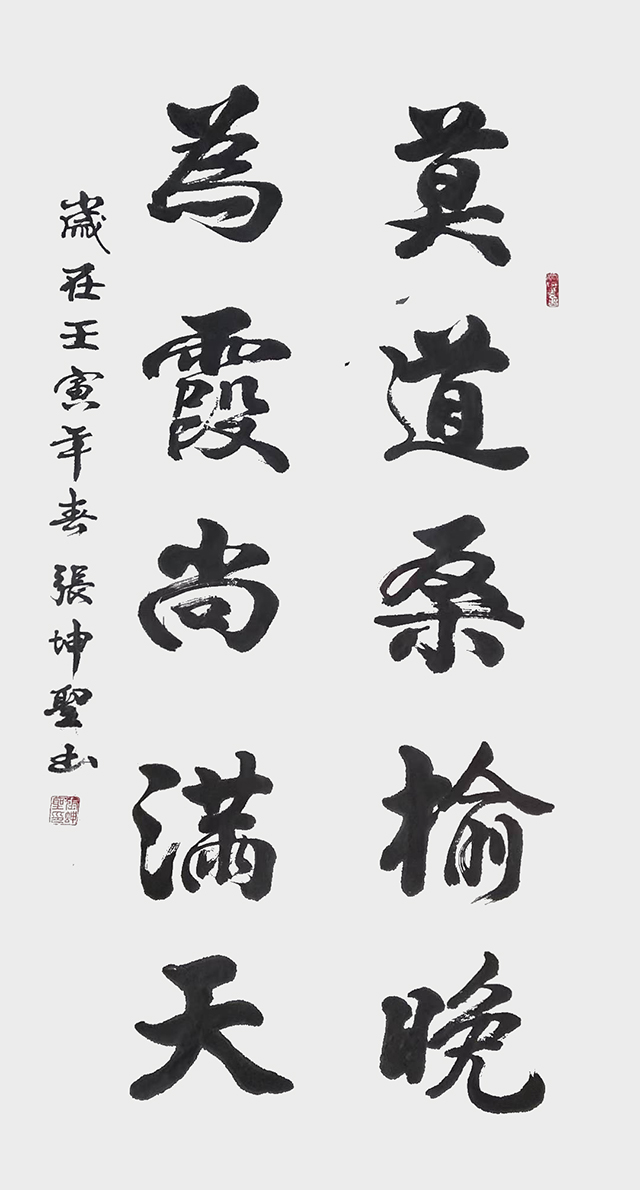 莫道桑榆晚
為霞尚滿天
歲在壬寅年春 張坤聖书